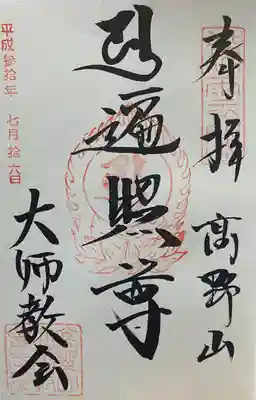 奉拝
高野山
遍照尊
大師教会
平成參拾年 七月拾六日